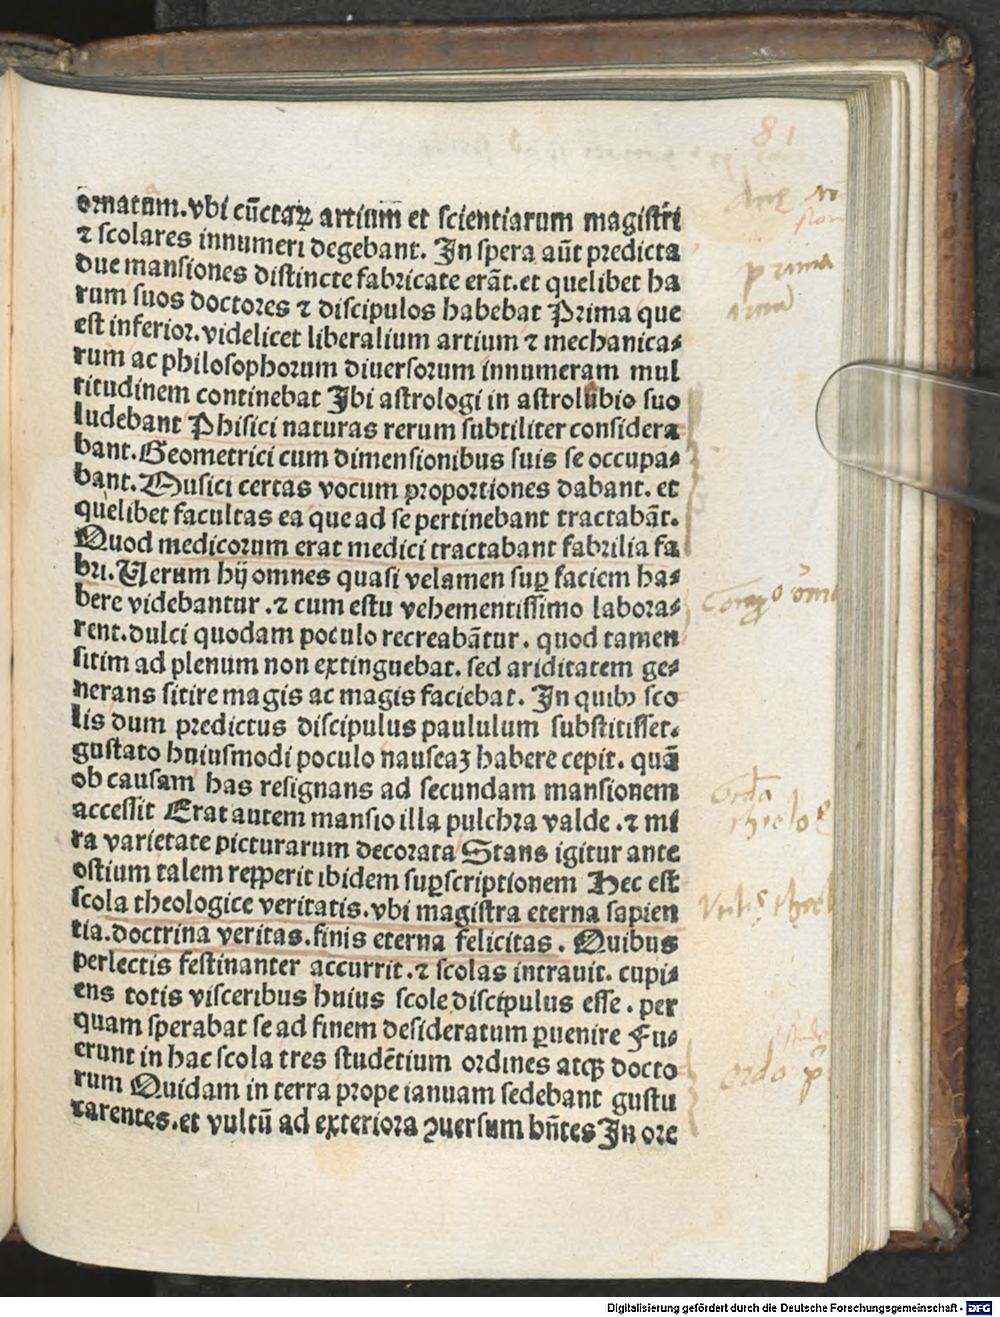 81
ornatam. vbi cūctaꝝ artium et scientiarum magistri
⁊ scolares innumeri degebant. In spera aūt predicta
due mansiones distincte fabricate erāt. et quelibet ha
rum suos doctores ⁊ discipulos habebat Prima que
est inferior. videlicet liberalium artium ⁊ mechanica⸗
rum ac philosophorum diuersorum innumeram mul
titudinem continebat Ibi astrologi in astrolabio suo
ludebant Phisici naturas rerum subtiliter considera
bant. Geometrici cum dimensionibus suis se occupa⸗
bant. Musici certas vocum proportiones dabant. et
quelibet facultas ea que ad se pertinebant tractabāt.
Quod medicorum erat medici tractabant fabrilia fa
bri. Uerum hij omnes quasi velamen suꝑ faciem ha⸗
bere videbantur. ⁊ cum estu vehementissimo labora⸗
rent. dulci quodam poculo recreabātur. quod tamen
sitim ad plenum non extinguebat. sed ariditatem ge⸗
nerans sitire magis ac magis faciebat. In quibꝰ sco
lis dum predictus discipulus paululum substitisset.
gustato huiusmodi poculo nauseaꝫ habere cepit. quā
ob causam has resignans ad secundam mansionem
accessit Erat autem mansio illa pulchra valde. ⁊ mi
ra varietate picturarum decorata Stans igitur ante
ostium talem reꝑperit ibidem suꝑscriptionem Hec est
scola theologice veritatis. vbi magistra eterna sapien
tia. doctrina veritas. finis eterna felicitas. Quibus
perlectis festinanter accurrit. ⁊ scolas intrauit. cupi⸗
ens totis visceribus huius scole discipulus esse. per
quam sperabat se ad finem desideratum ꝑuenire Fu⸗
erunt in hac scola tres studētium ordines atqꝫ docto
rum Quidam in terra prope ianuam sedebant gustu
carentes. et vultū ad exteriora ꝯuersum hn̄tes In ore
prima
ordo
Digitalisierung gefördert durch die Deutsche Forschungsgemeinschaft - DFG